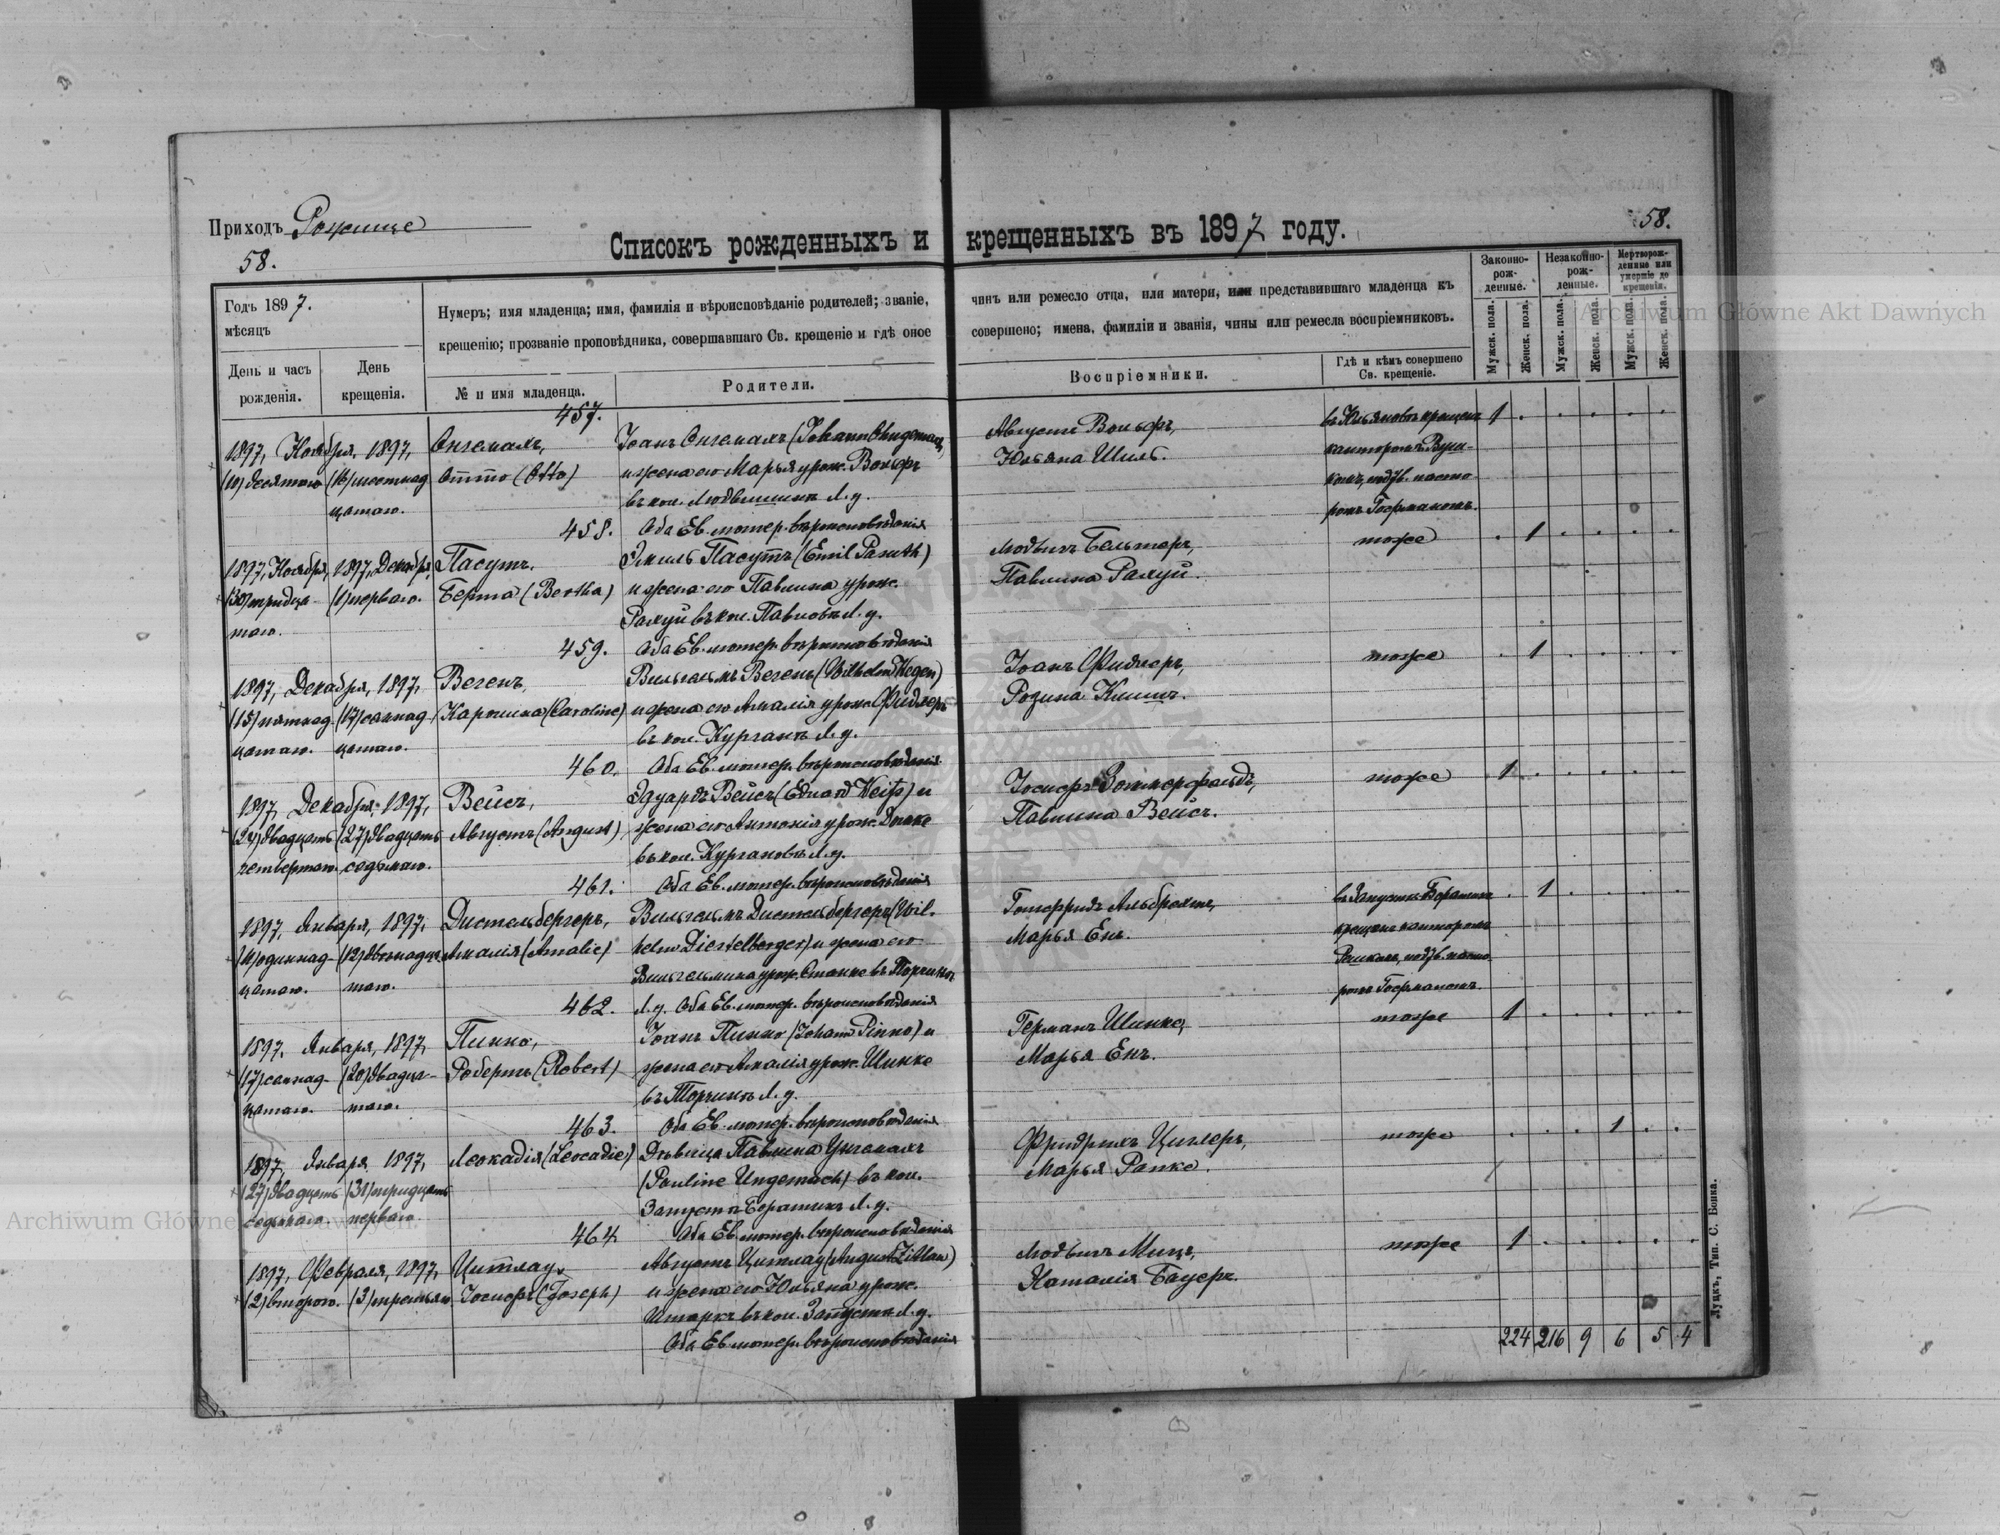 Приходъ Рожище
58.
58.
Списокъ рожденныхъ и крещенныхъ въ 1897 году.
Годъ 1897.
мѣсяцъ
День и часъ рожденія.
День крещенія.
Нумеръ; имя младенца; имя, фамилія и вѣроисповѣданіе родителей; званіе, чинъ или ремесло отца, или матери, или представившаго младенца къ
крещенію; прозваніе проповѣдника, совершавшаго Св. крещеніе и гдѣ оное совершено; имена, фамиліи и званія, чины или ремесла воспріемниковъ.
№ и имя младенца.
Родители.
Воспріемники.
Гдѣ и кѣмъ совершено Св. крещеніе.
Законно-рож-денные.
Незаконно-рож-денные.
Мертворож-денные или умершіе до крещенія.
Мужск. пола.
Женск. пола.
Мужск. пола.
Женск. пола.
Мужск. пола.
Женск. пола.
457.
1897, Ноября, 1897,
(10) десятаго (16) шестнад
цатаго.
Онгемахъ,
Отто (Otto)
Іоанъ Онгемахъ (Johann Ongemach)
и жена его Марья урож. Вольфъ
въ кол. Людвишинъ Л. у.
Оба Ев. лютер. вѣроисповѣданія
Августъ Вольфъ,
Юльяна Шиль.
крещенъ
канторомъ
пасто
ромъ
1
458.
1897, Ноября, 1897, Декабря,
(30) тридца (1) перваго.
таго.
Пасутъ.
Берта (Bertha)
Эмиль Пасутъ (Emil Pasuth)
и жена его Павлина урож.
въ кол. Павловъ Л. у.
Оба Ев. лютер. вѣроисповѣданія
Людвигъ Бельтеръ,
Павлина
тоже
1
459.
1897, Декабря, 1897,
(15) пятнад (17) семнад
цатаго. цатаго.
Вегенъ,
Каролина (Caroline)
Вильгельмъ Вегенъ (Wilhelm Wegen)
и жена его Амалія урож. Фидлеръ
въ кол. Курганъ Л. у.
Оба Ев. лютер. вѣроисповѣданія
Іоанъ Фидлеръ,
Розина
тоже
1
460.
1897, Декабря, 1897,
(24) двадцать (27) двадцать
четвертаго. седьмаго.
Вейсъ,
Августъ (August)
Эдуардъ Вейсъ (Eduard Weiß) и
жена его Антонія урож.
въ кол. Кургановъ Л. у.
Оба Ев. лютер. вѣроисповѣданія
Іосифъ
Павлина Вейсъ.
тоже
1
461.
1897, Января, 1897,
(11) одиннад (12) двѣнадца
цатаго. таго.
Дистельбергеръ,
Амалія (Amalie)
Вильгельмъ Дистельбергеръ (Wil-
helm Diestelberger) и жена его
Вильгельмина урож. въ Торчинъ
Л. у. Оба Ев. лютер. вѣроисповѣданія
Готфридъ Альбрехтъ,
Марья Енъ.
крещенъ канторомъ
пасто
ромъ
1
462.
1897, Января, 1897,
(17) семнад (20) двадца
цатаго. таго.
Пинно,
Робертъ (Robert)
Іоанъ Пинно (Johann Pinno) и
жена его Амалія урож. Шинке
въ Торчинъ Л. у.
Оба Ев. лютер. вѣроисповѣданія
Германъ Шинке,
Марья Енъ.
тоже
1
463.
1897, Января, 1897,
(27) двадцать (31) тридцать
седьмаго. перваго.
Леокадія (Leocadie)
Дѣвица Павлина Унгемахъ
(Pauline Ungemach) въ кол.
Оба Ев. лютер. вѣроисповѣданія
Фридрихъ Циглеръ,
Марья Рапке.
тоже
1
464.
1897, Февраля, 1897,
(2) втораго. (3) третьяго
Цитлау,
Іосифъ (Joseph)
Августъ Цитлау (August Zittlau)
и жена его Юльяна урож.
Штаркъ въ кол. Запустъ Л. у.
Оба Ев. лютер. вѣроисповѣданія
Людвигъ Мицъ,
Наталія Бауеръ.
тоже
1
224 216 9 6 5 4
Луцкъ, Тип. С. Бонка.
Archiwum Główne Akt Dawnych
Archiwum Główne Akt Dawnych